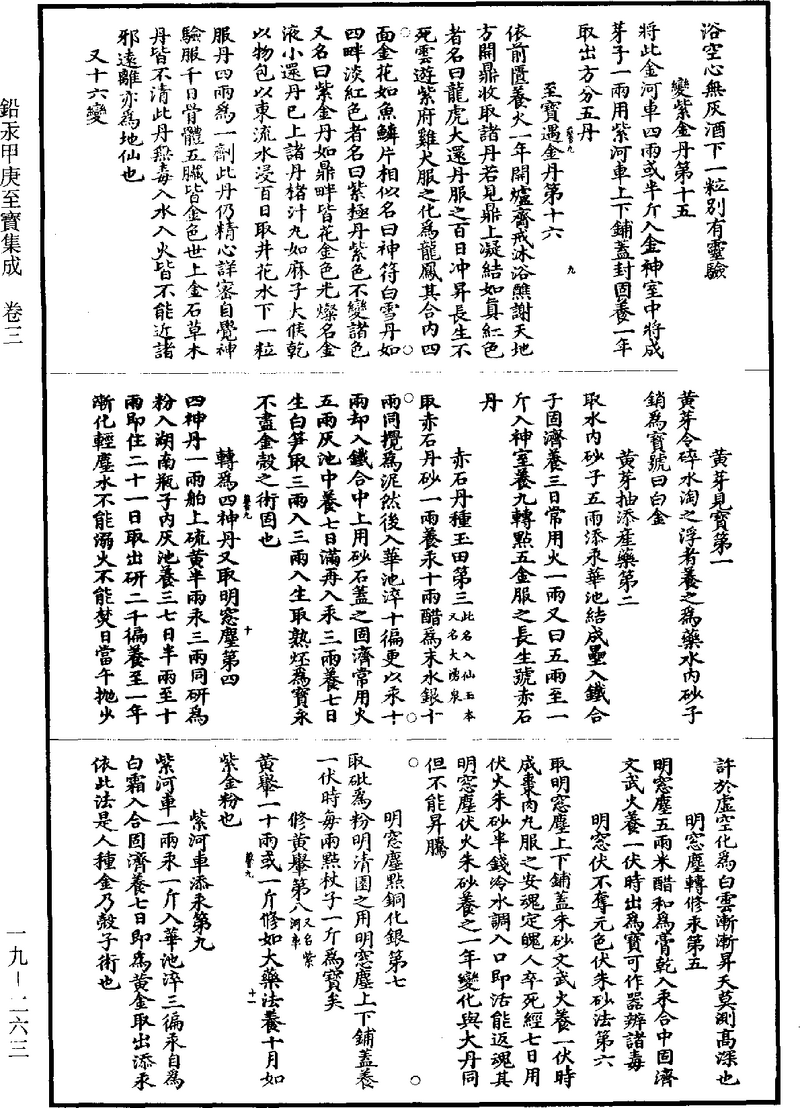 鉛汞甲庚至寶集成　卷三
浴空心無灰酒下一粒別有靈驗
變紫金丹第十五
將此金河車四兩或半斤入金神室中將成
芽子一兩用紫河車上下鋪蓋封固養一年
取出方分五丹
至寶遇金丹第十六
依前匱養火一年開爐齋戒沐浴醮謝天地
方開鼎收取諸丹若見鼎上凝結如真紅色
者名曰龍虎大還丹服之百日冲昇長生不
死雲遊紫府雞犬服之化為龍鳳其合內四
面金花如魚鱗片相似名曰神符白雪丹如
四畔淡紅色者名曰紫極丹紫色不變諸色
又名曰紫金丹如鼎畔皆花金色光燦名金
液小還丹已上諸丹楮汁丸如麻子大候乾
以物包以東流水浸百日取井花水下一粒
服丹四兩為一劑此丹仍精心詳審自覺神
驗服千日骨體五臟皆金色世上金石草木
丹皆不清此丹無毒入水入火皆不能近諸
邪遠離亦為地仙也
又十六變
黃芽見寶第一
黃芽令碎水淘之浮者養之為藥水內砂子
銷為寶號曰白金
黃芽抽添產藥第二
取水內砂子五兩添汞華池結成壘入鐵合
子固濟養三日常用火一兩又曰五兩至一
斤入神室養九轉點五金服之長生號赤石
丹
赤石丹種玉田第三此名入仙玉本又名大湧泉
取赤石丹砂一兩養汞十兩醋為末水銀十
兩同攪為泥然後入華池淬十徧更以汞十
兩却入鐵合中上用砂石蓋之固濟常用火
五兩灰池中養七日滿再入汞三兩養七日
生白笋取三兩入三兩入生取熟煅為寶永
不盡金殼之術固也
轉為四神丹又取明窓塵第四
四神丹一兩舶上硫黃半兩汞三兩同研為
粉入湖南瓶子內灰池養三七日半兩至十
兩即住二十一日取出研二千徧養至一年
漸化輕塵水不能溺火不能焚日當午拋少
許於虛空化為白雲漸漸昇天莫測高深也
明窓塵轉修汞第五
明窓塵五兩米醋和為膏乾入汞合中固濟
文武火養一伏時出為寶可作器辨諸毒
明窓伏不奪元色伏朱砂法第六
取明窓塵上下鋪蓋朱砂文武火養一伏時
成棗肉丸服之安魂定魄人卒死經七日用
伏火朱砂半錢冷水調入口即活能返魂其
明窓塵伏火朱砂養之一年變化與大丹同
但不能昇騰
明窓塵點銅化銀第七
取砒為粉明清圓之用明窓塵上下鋪蓋養
一伏時每兩點杖子一斤為寶矣
修黃轝第八又名紫河車
黃轝一十兩或一斤修如大藥法養十月如
紫金粉也
紫河車添汞第九
紫河車一兩汞一斤入華池淬三徧汞自為
白霜入合固濟養七日即為黃金取出添汞
依此法是人種金乃殼子術也
一九－二六三